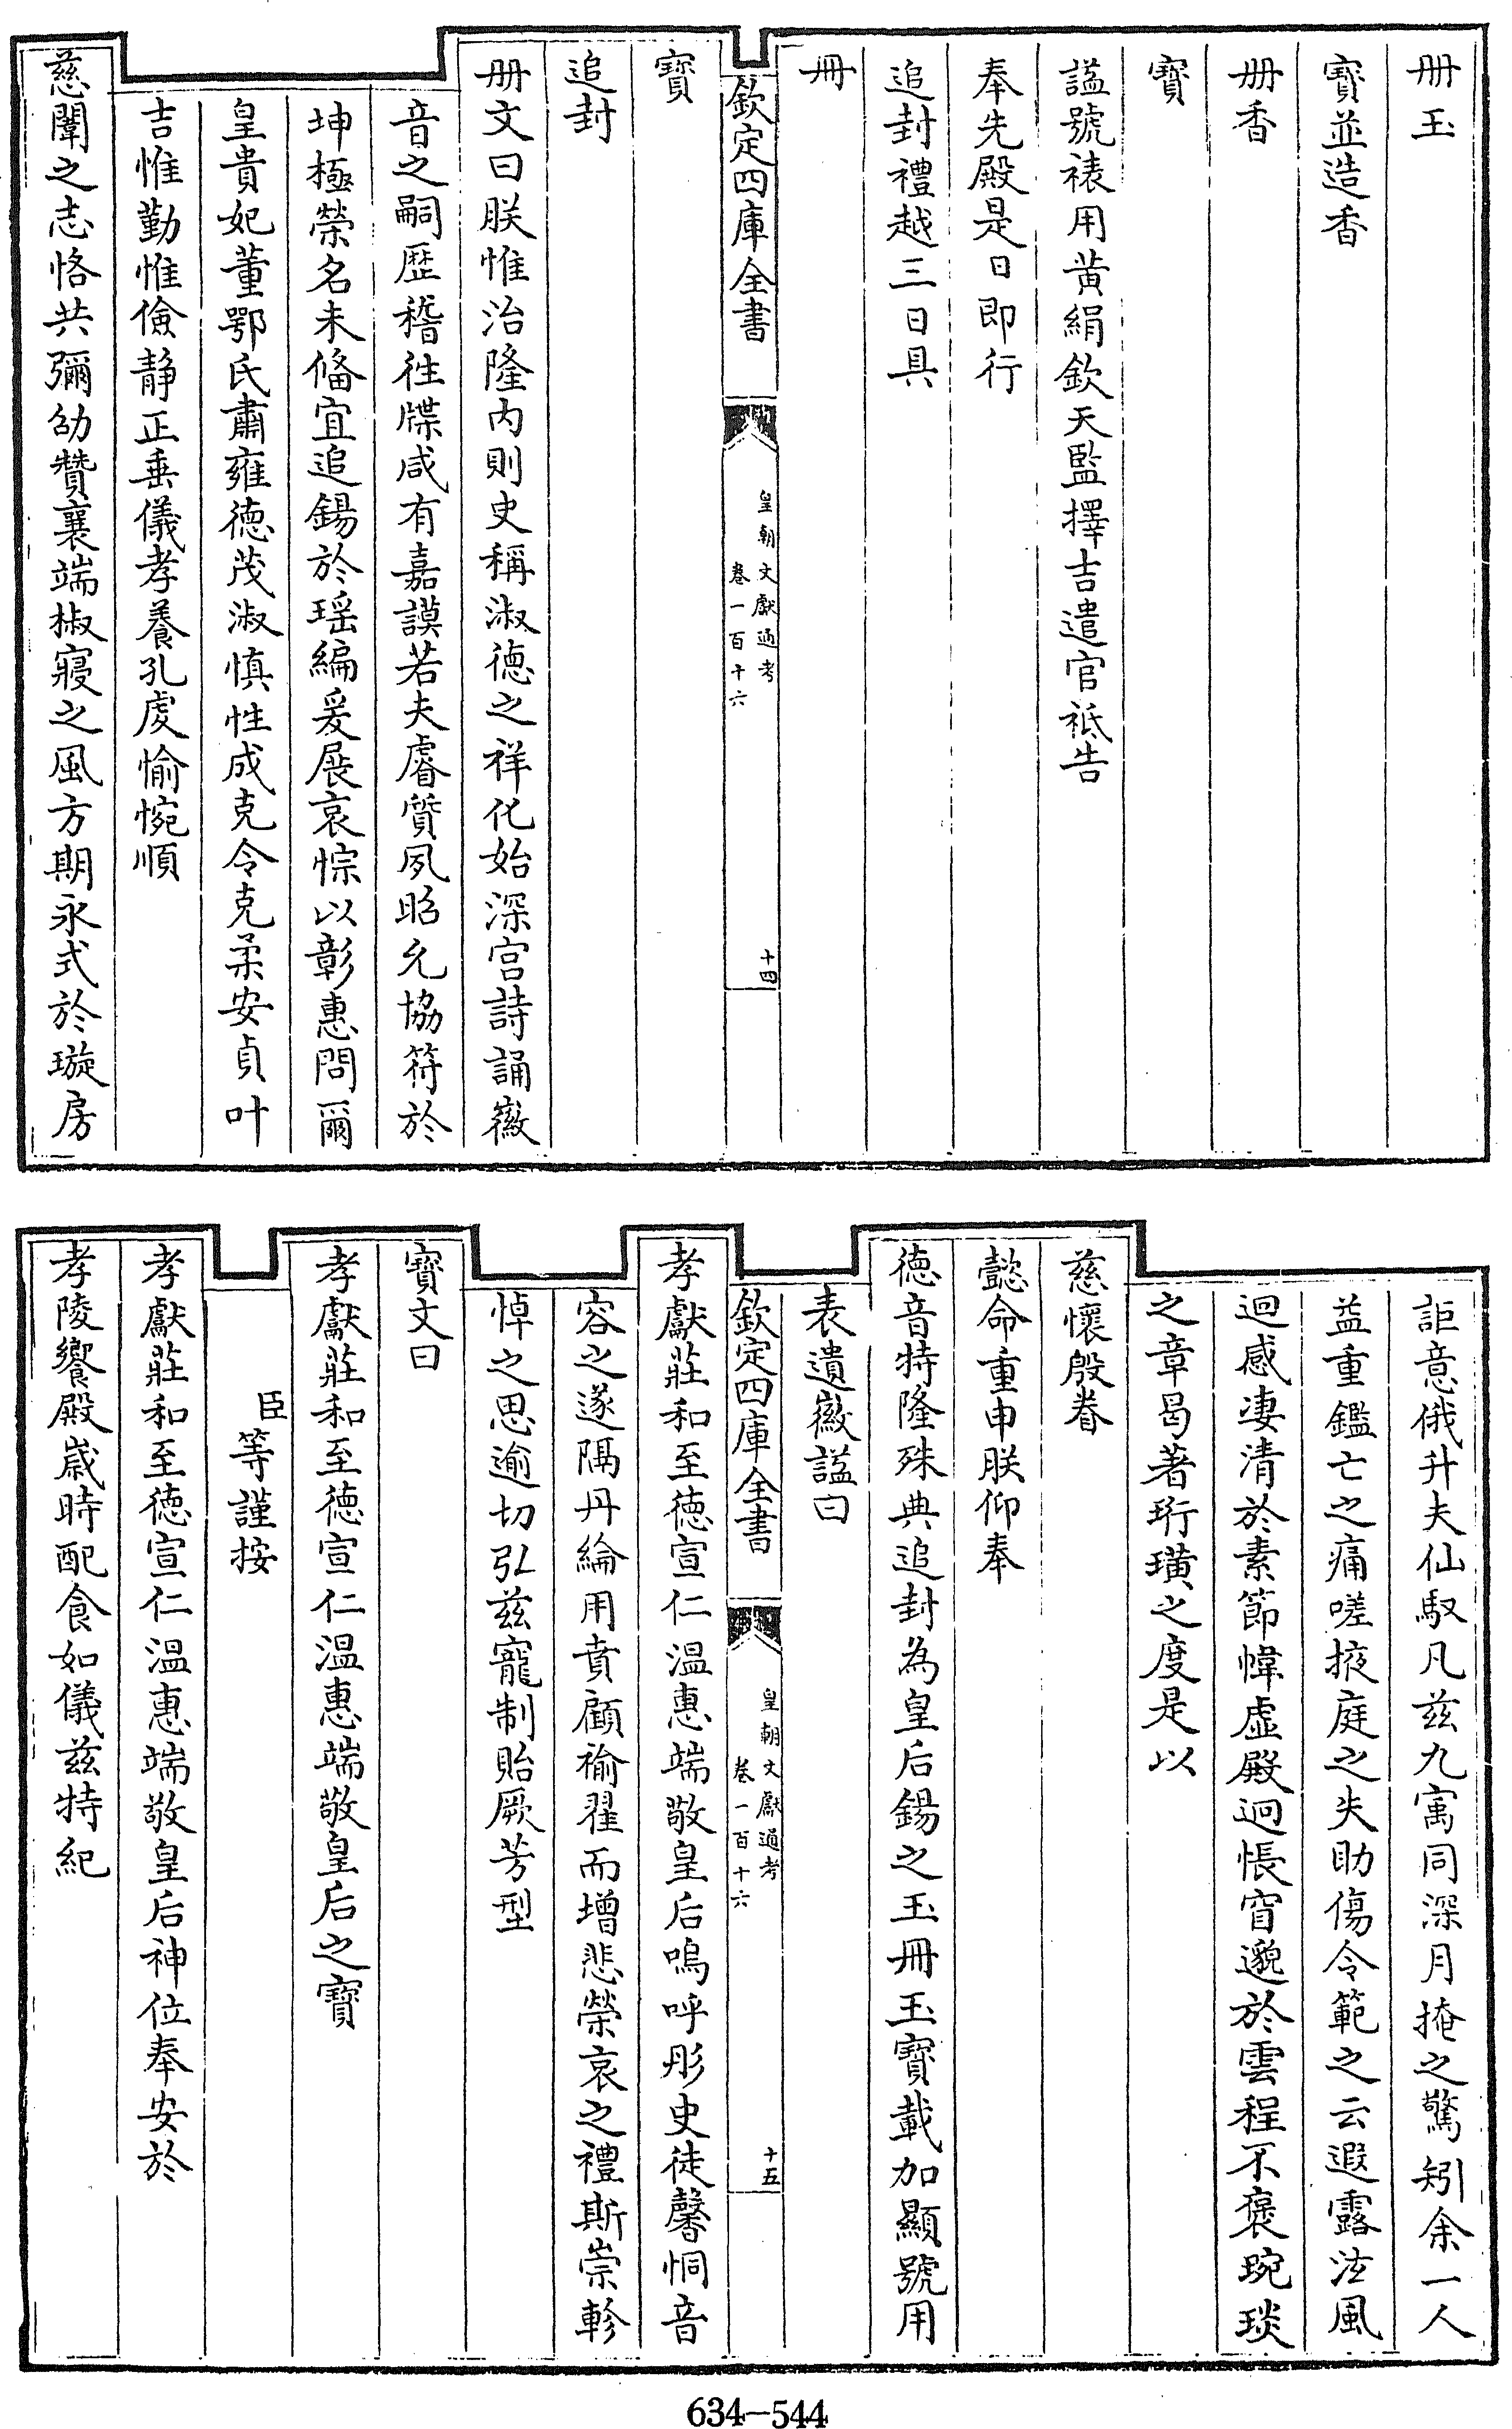 册玉
寳並造香
册香
寳
諡號裱用黄絹欽天監擇吉遣官祗告
奉先殿是日即行
追封禮越三日具
冊
欽定四庫全書
皇朝文獻通考
卷一百十六
十四
寳
追封
册文曰朕惟治隆内則史稱淑徳之祥化始深宫詩誦徽
音之嗣歴稽徃牒咸有嘉謨若夫睿質夙昭允協符於
坤極榮名未偹宜追錫於瑶編爰展哀悰以彰惠問爾
皇貴妃董鄂氏肅雍徳茂淑慎性成克令克柔安貞叶
吉惟勤惟儉静正垂儀孝養孔虔愉惋順
慈闈之志恪共彌劭贊襄端椒寢之風方期永式於璇房
詎意俄升夫仙馭凡兹九寓同深月掩之驚矧余一人
益重鑑亡之痛嗟掖庭之失助傷令範之云遐露泫風
迴感凄清於素節幃虚殿迥悵窅邈於雲程不褒琬琰
之章曷著珩璜之度是以
慈懷殷眷
懿命重申朕仰奉
徳音特隆殊典追封為皇后錫之玉冊玉寳載加顯號用
表遺徽諡曰
欽定四庫全書
皇朝文獻通考
卷一百十六
十五
孝獻莊和至徳宣仁温惠端敬皇后嗚呼彤史徒馨恫音
容之遂隔丹綸用賁顧褕翟而增悲榮哀之禮斯崇軫
悼之思逾切弘兹寵制貽厥芳型
寳文曰
孝獻莊和至徳宣仁温惠端敬皇后之寳
臣等謹按
孝獻莊和至徳宣仁温惠端敬皇后神位奉安於
孝陵饗殿嵗時配食如儀兹特紀
634-544